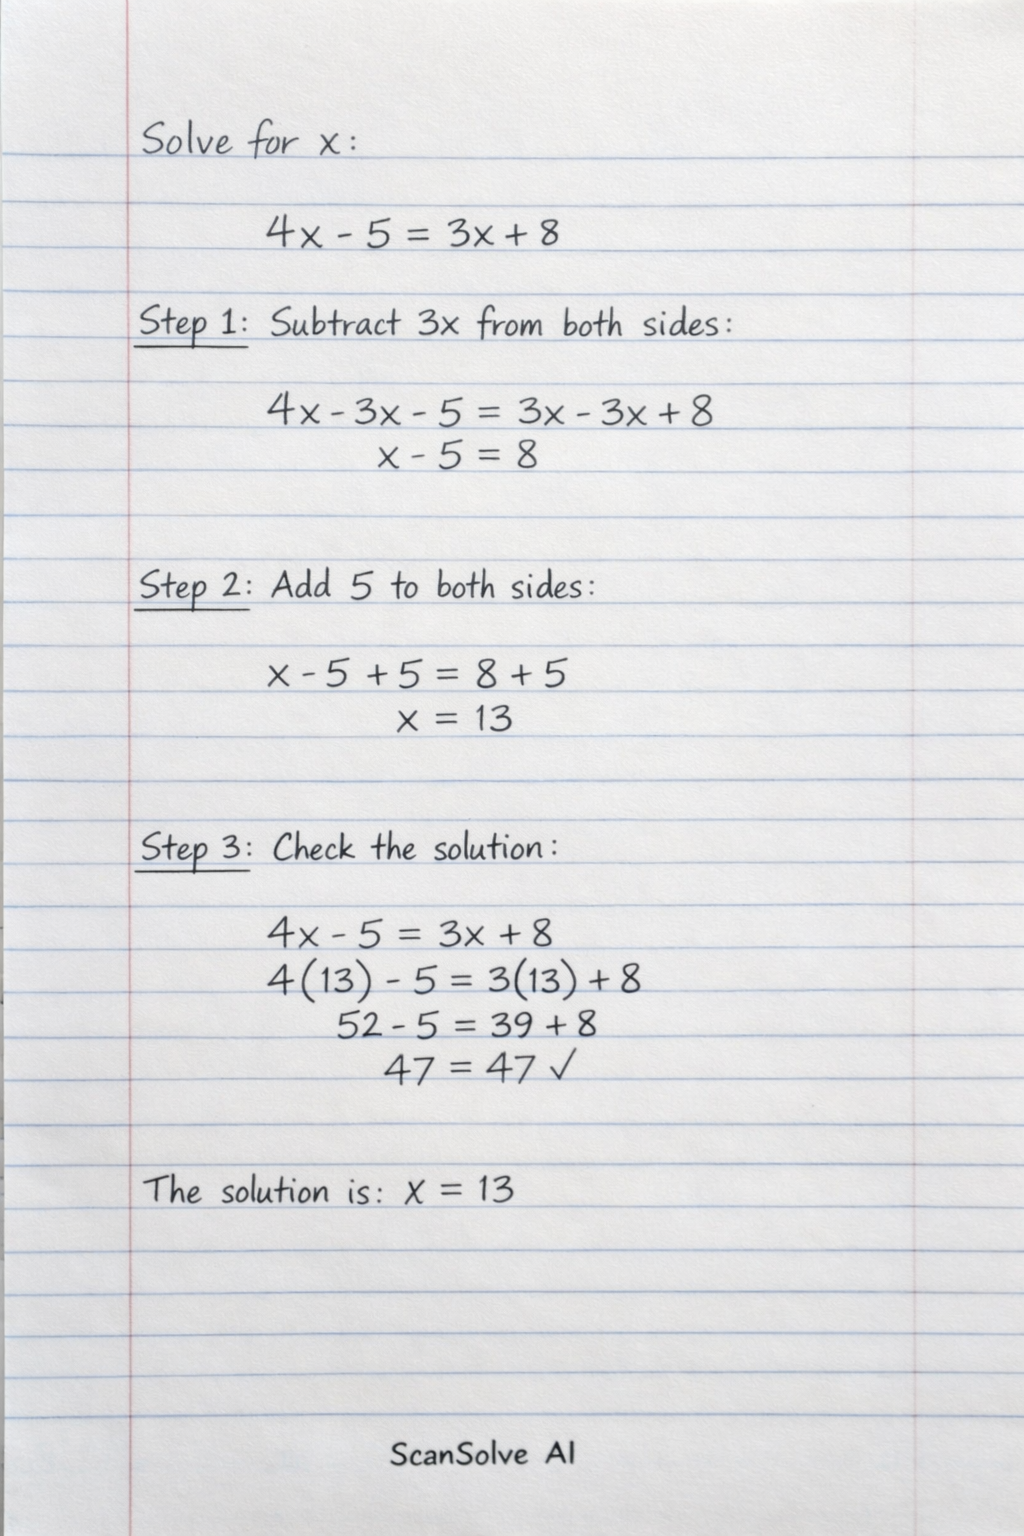 Solve for x:
4x - 5 = 3x + 8
Step 1: Subtract 3x from both sides:
4x - 3x - 5 = 3x - 3x + 8
x - 5 = 8
Step 2: Add 5 to both sides:
x - 5 + 5 = 8 + 5
x = 13
Step 3: Check the solution:
4x - 5 = 3x + 8
4(13) - 5 = 3(13) + 8
52 - 5 = 39 + 8
47 = 47 ✓
The solution is: x = 13
ScanSolve AI